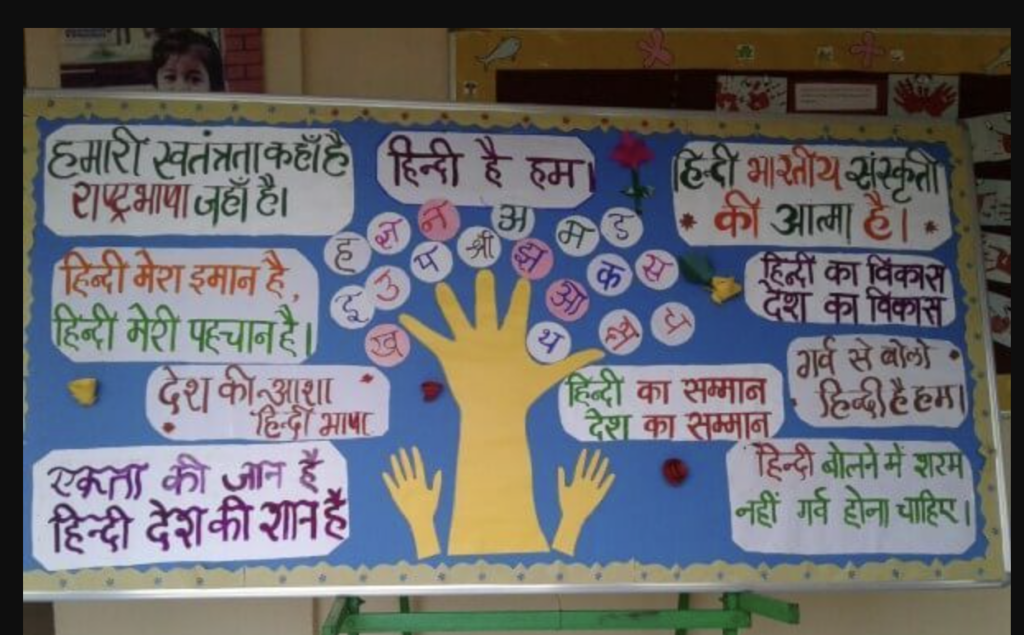 हमारी स्वतंत्रता कहाँ है
राष्ट्रभाषा जहाँ है।
हिन्दी है हम।
हिन्दी भारतीय संस्कृती
की आत्मा है।
हिन्दी मेरा इमान है,
हिन्दी मेरी पहचान है।
हिन्दी का विकास
देश का विकास
देश की आशा
हिन्दी भाषा
हिन्दी का सम्मान
देश का सम्मान
गर्व से बोलो
हिन्दी है हम।
एकता की जान है
हिन्दी देश की शान है
हिन्दी बोलने में शरम
नहीं गर्व होना चाहिए।
ह ज्ञ न अ म ड
प श्री झ क स
इ उ ओ
ख थ